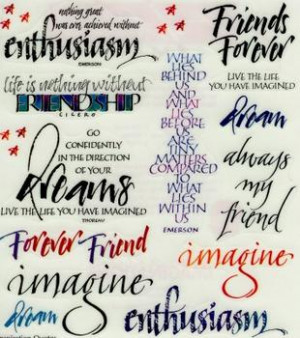 nothing great
was ever achieved without
enthusiasm
EMERSON
life is nothing without
FRIENDSHIP
CICERO
GO
CONFIDENTLY
IN THE DIRECTION
OF YOUR
dreams
LIVE THE LIFE YOU HAVE IMAGINED
THOREAU
WHAT
LIES
BEHIND
US
AND
WHAT
LIES
BEFORE
US
ARE
TINY
MATTERS
COMPARED
TO
WHAT
LIES
WITHIN
US
EMERSON
Friends
Forever
LIVE THE LIFE
YOU HAVE IMAGINED
dream
always
my
friend
Forever Friend
imagine
imagine
dream
enthusiasm